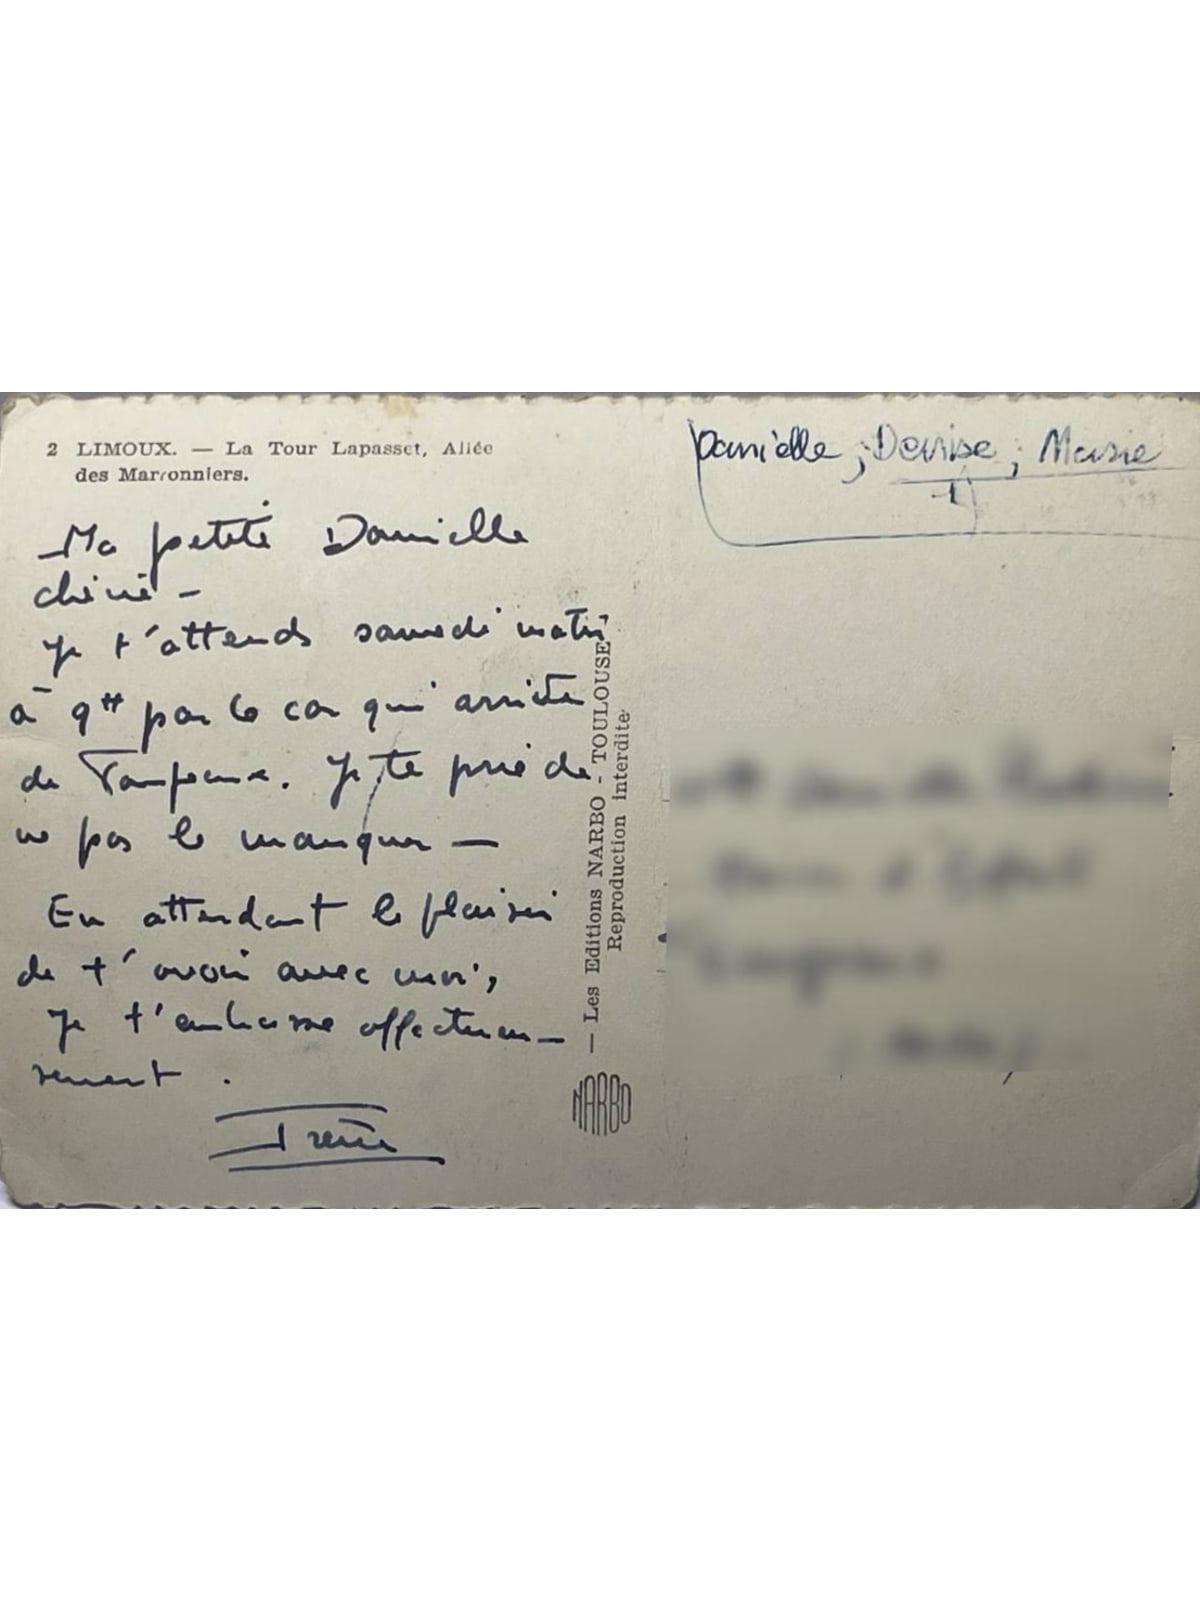 2 LIMOUX. — La Tour Lapasset, Allée
des Marronniers.
Ma petite Danielle
chérie -
Je t'attends samedi matin
à 9H par le car qui arrive
de . Je te prie de
ne pas le manquer —
En attendant le plaisir
de t'avoir avec moi,
Je t'embrasse affectueu-
sement .
Irène
— Les Editions NARBO - TOULOUSE
Reproduction interdite
NARBO
Danielle ; Denise ; Marie